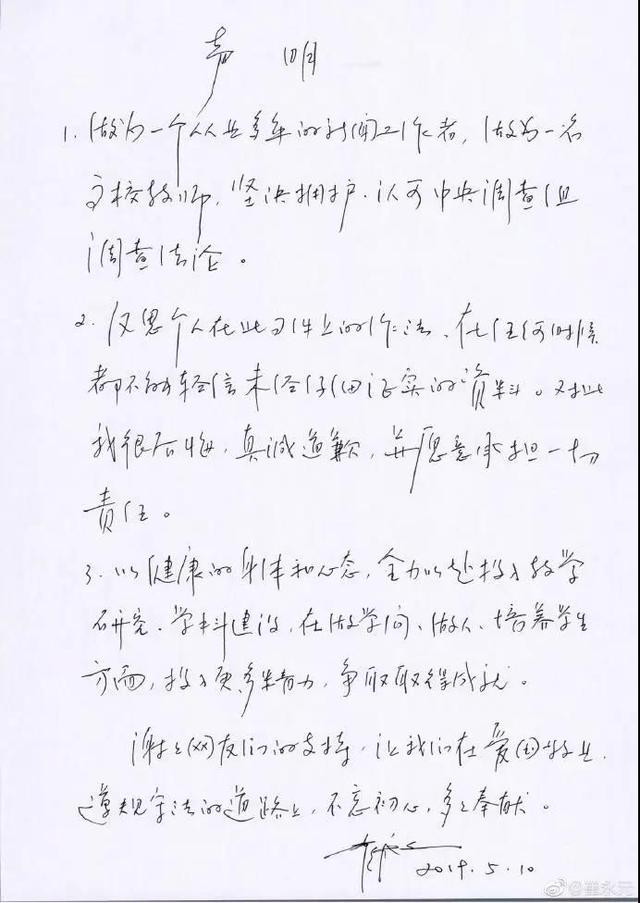 声 明
1. 做为一个从业多年的新闻工作者，做为一名
高校教师，坚决拥护、认可中央调查组
调查结论。
2. 反思个人在此事件上的作法、在任何时候
都不能轻信未经仔细证实的资料。对此
我很后悔，真诚道歉，并愿意承担一切
责任。
3. 以健康的身体和心态，全力以赴投入教学
研究、学科建设，在做学问、做人、培养学生
方面，投入更多精力，争取取得成就。
谢谢网友们的支持，让我们在爱国敬业、
遵规守法的道路上，不忘初心，多多奉献。
2019.5.10
@崔永元